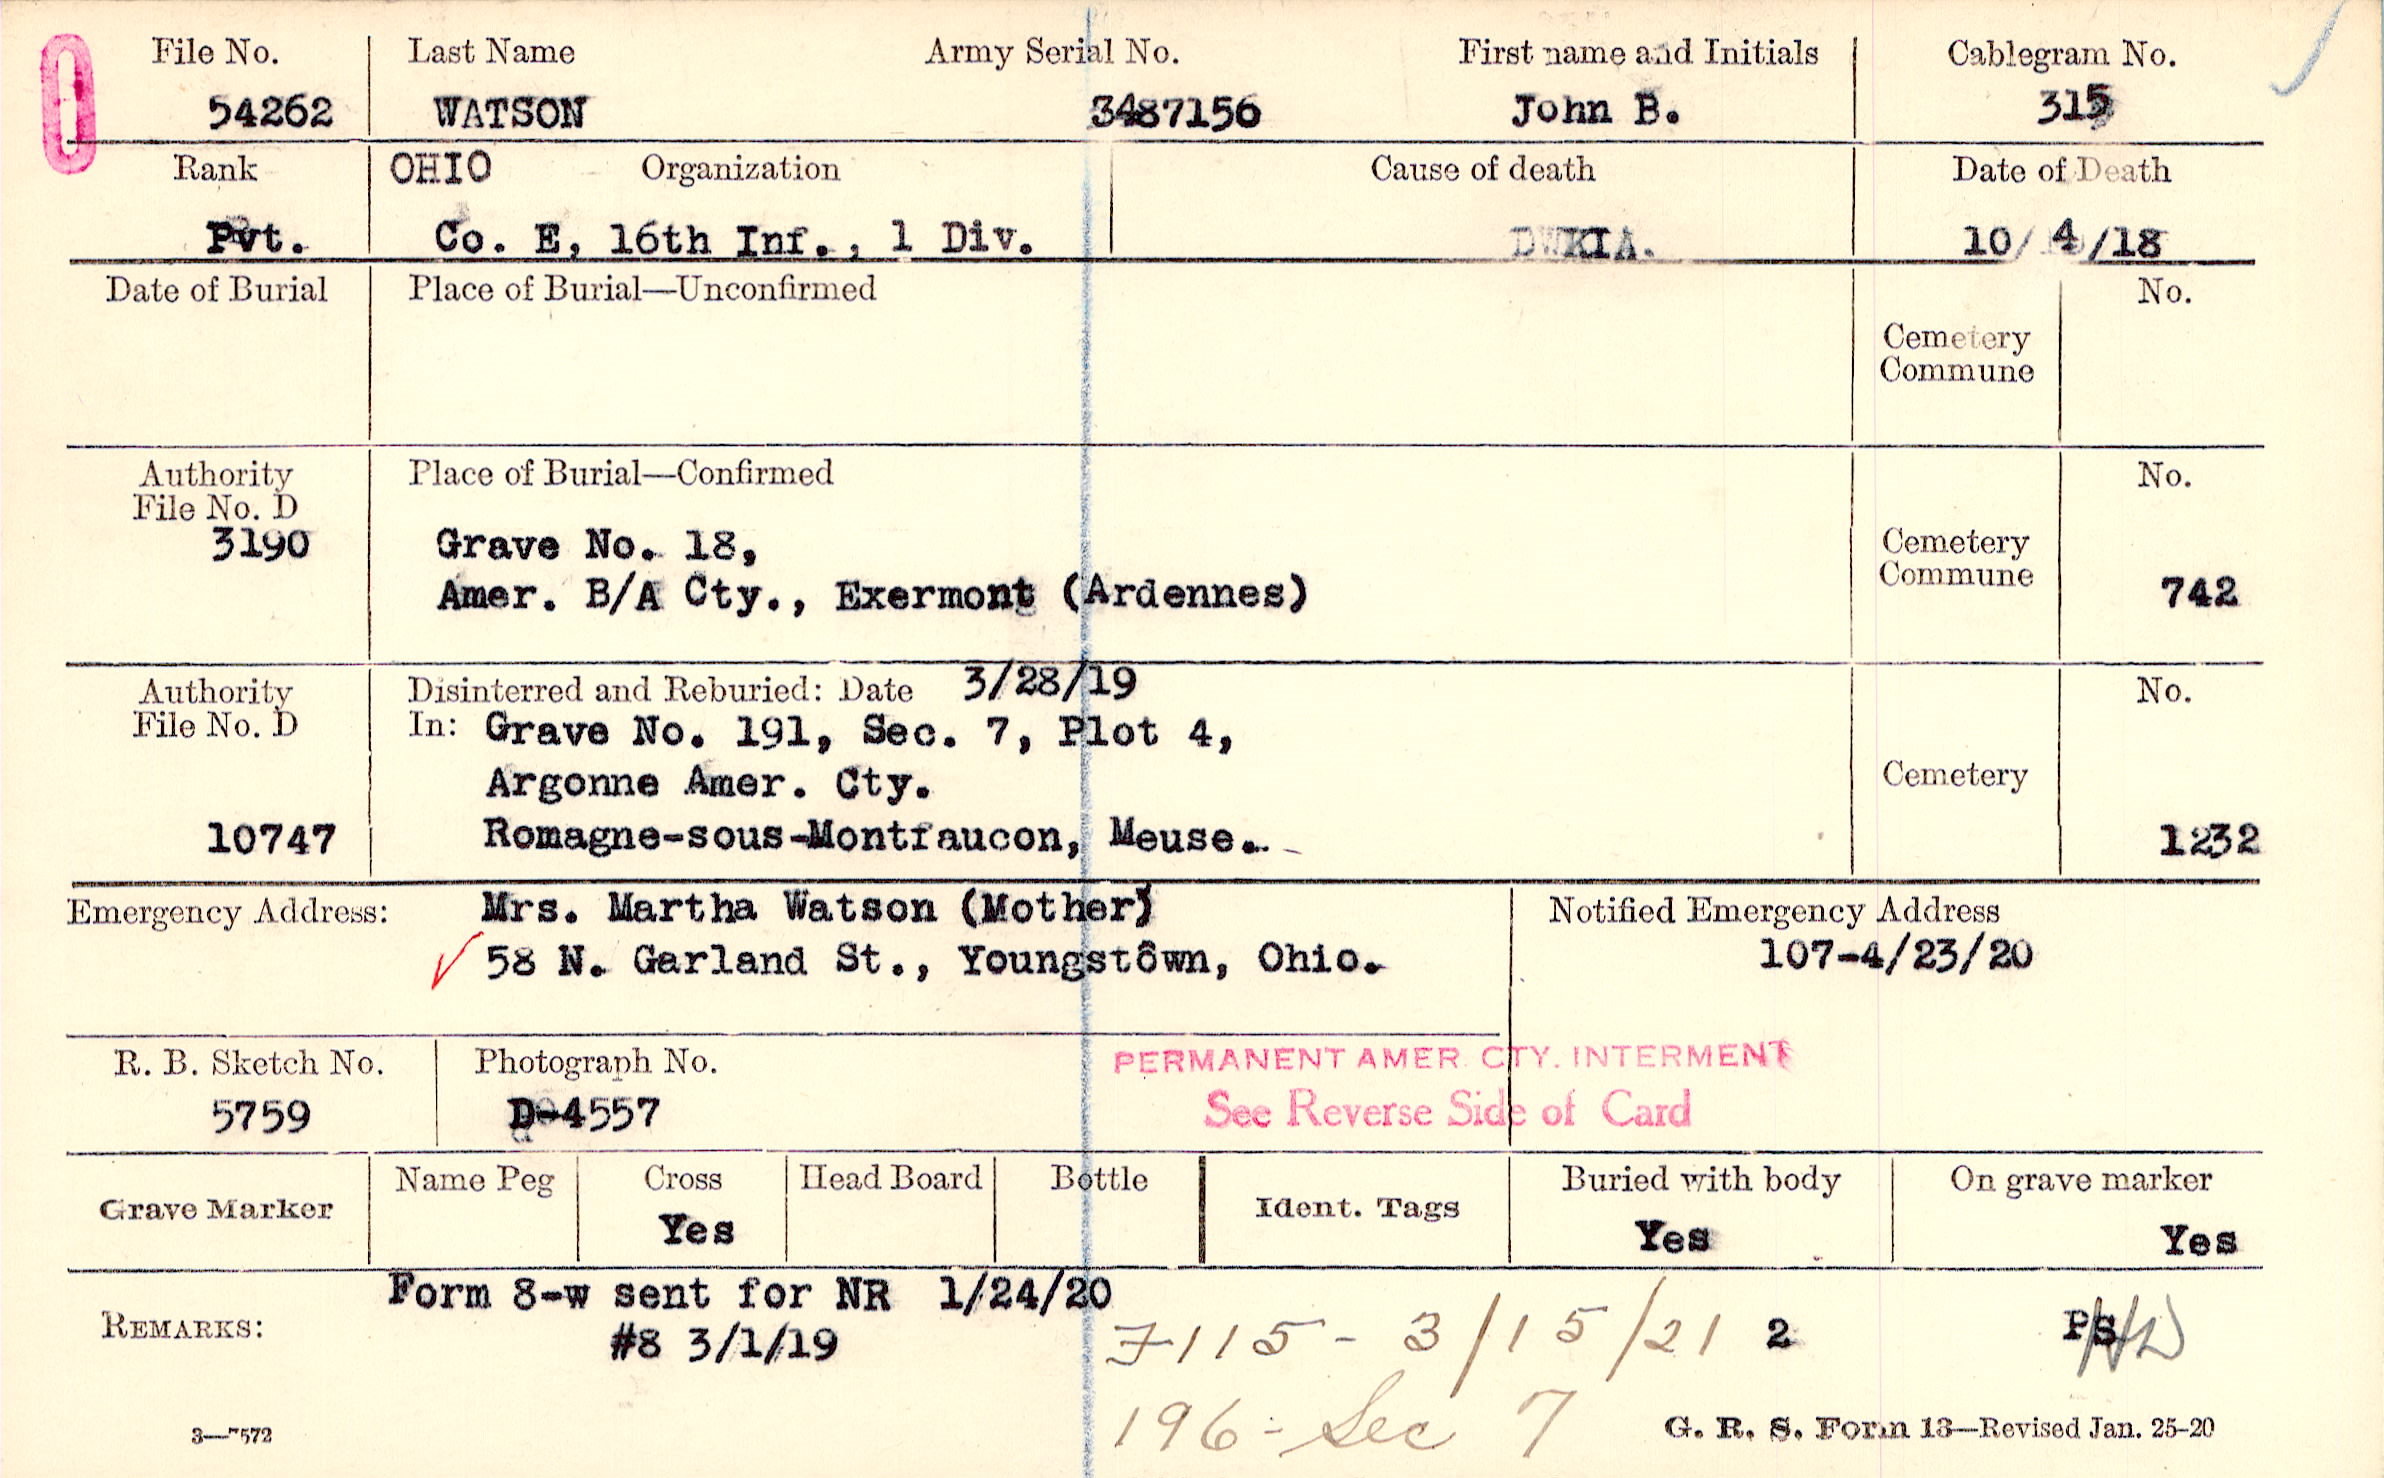 File No. Last Name Army Serial No. First name and Initials Cablegram No.
54262 WATSON 3487156 John B. 315
Rank OHIO Organization Cause of death Date of Death
Pvt. Co. E, 16th Inf., 1 Div. KIA. 10/ 4/18
Date of Burial Place of Burial—Unconfirmed No.
Cemetery
Commune
Authority Place of Burial—Confirmed No.
File No. D
3190 Grave No. 18, Cemetery
Amer. B/A Cty., Exermont (Ardennes) Commune 742
Authority Disinterred and Reburied: Date 3/28/19 No.
File No. D In: Grave No. 191, Sec. 7, Plot 4,
Argonne Amer. Cty. Cemetery
10747 Romagne-sous-Montfaucon, Meuse. 1232
Emergency Address: Mrs. Martha Watson (Mother) Notified Emergency Address
58 N. Garland St., Youngstown, Ohio. 107-4/23/20
R. B. Sketch No. Photograph No. PERMANENT AMER. CTY. INTERMENT
5759 D-4557 See Reverse Side of Card
Grave Marker Name Peg Cross Head Board Bottle Ident. Tags Buried with body On grave marker
Yes Yes Yes
Form 8-w sent for NR 1/24/20
REMARKS: #8 3/1/19 F115- 3/15/21 2 PS
196- Sec 7
3—7572 G. R. S. Form 13—Revised Jan. 25-20